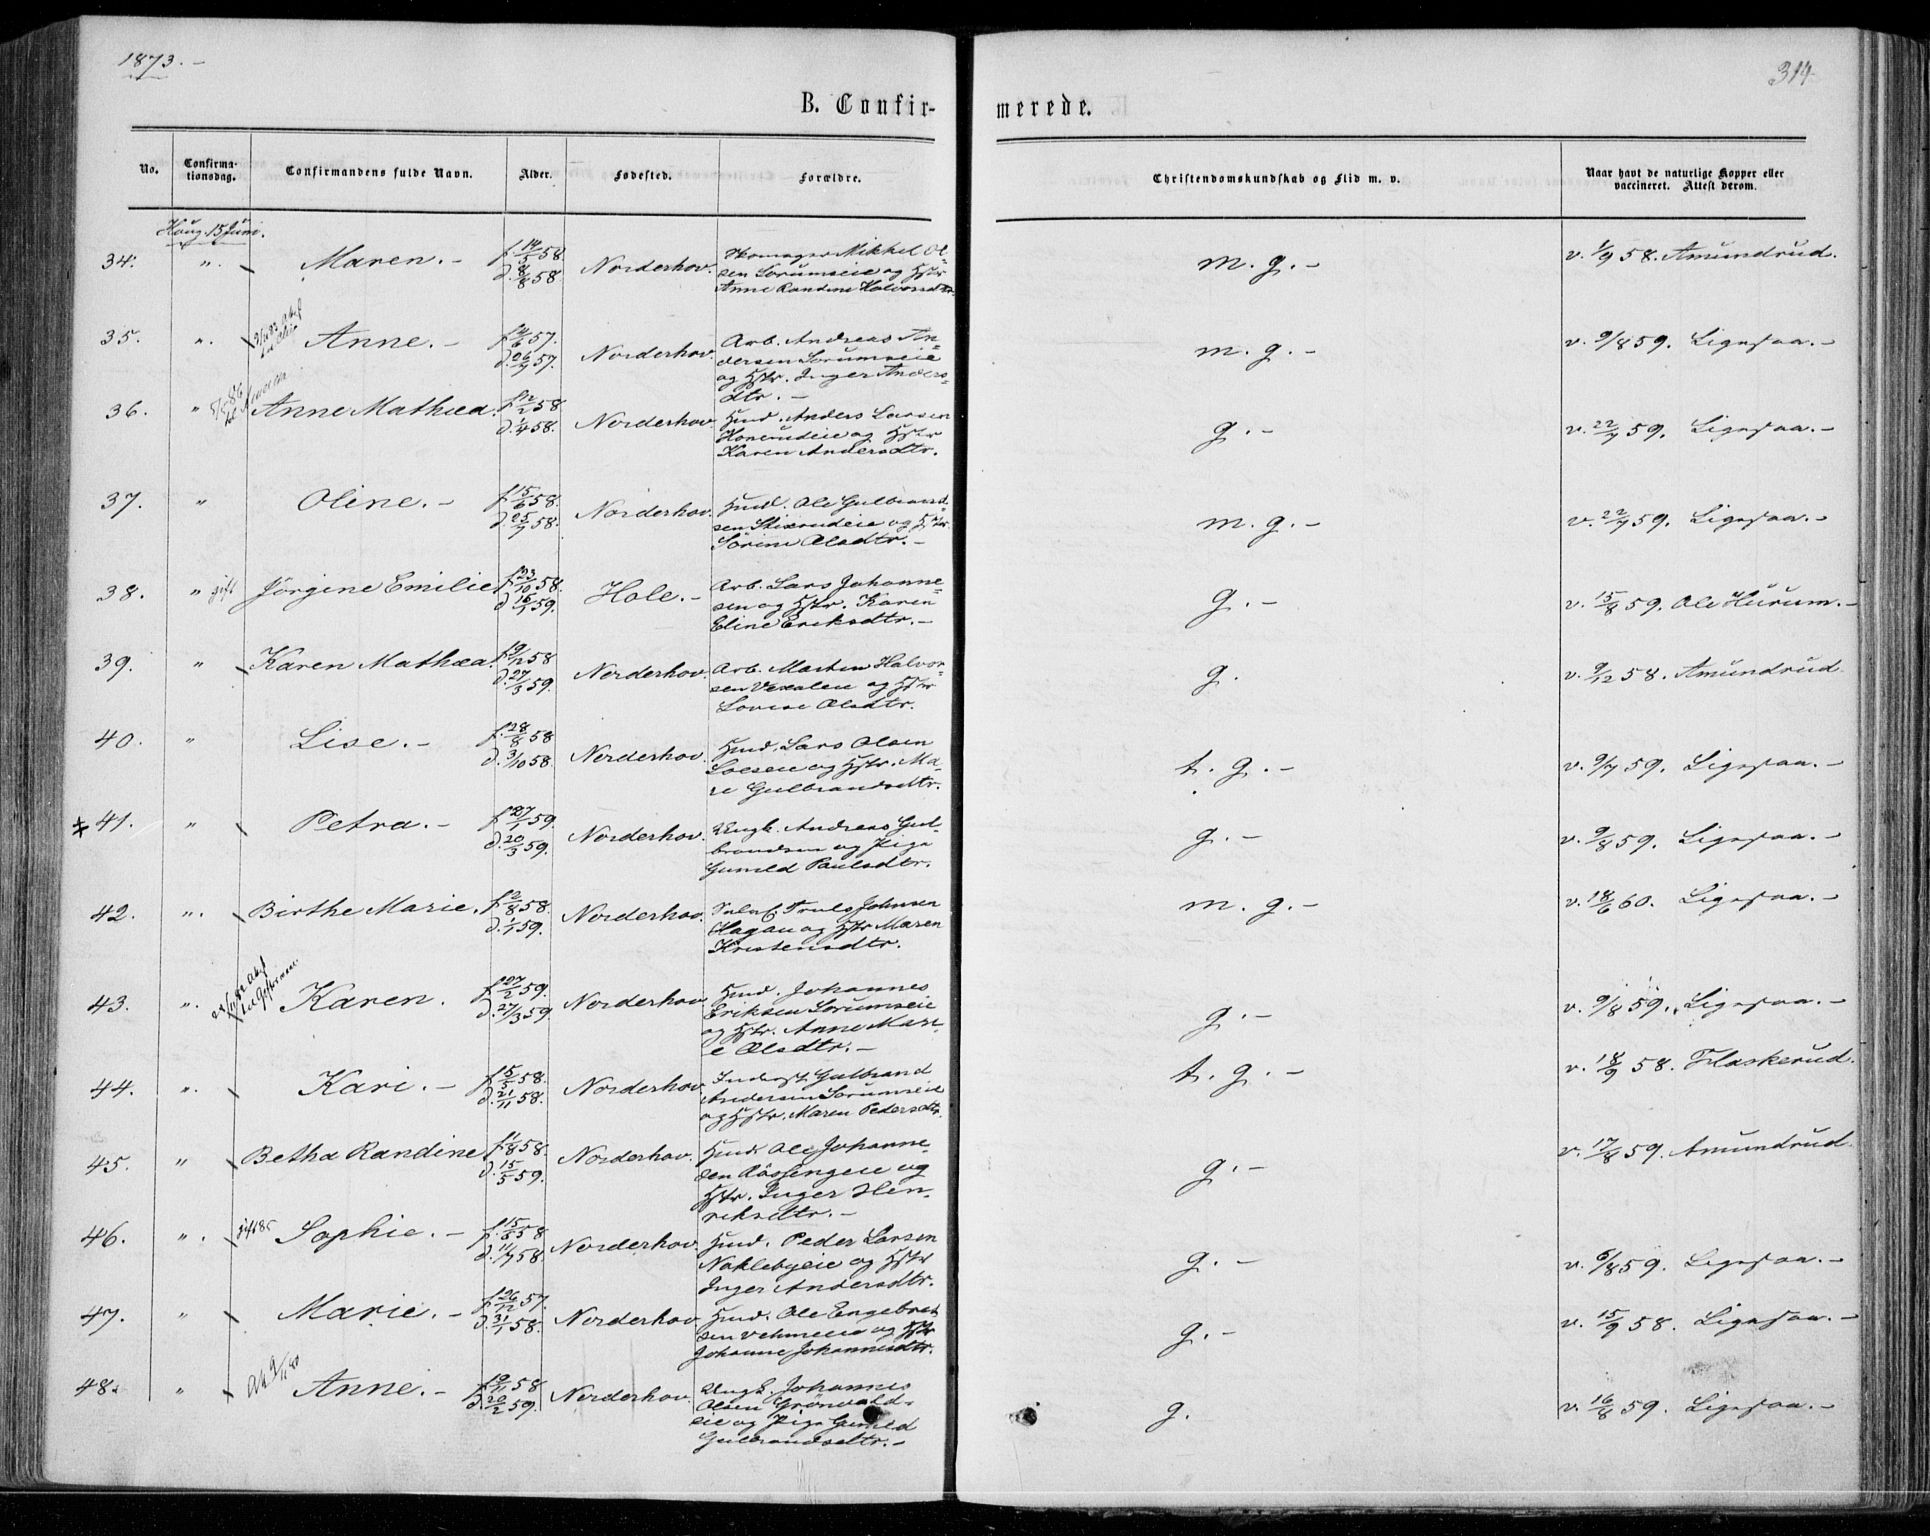 1873. -
314
B. Confir-
merede.
No.
Confirma-
tionsdag.
Confirmandens fulde Navn.
Alder.
Fødested.
Forældre.
Christendomskundskab og Flid m. v.
Naar havt de naturlige Kopper eller
vaccineret. Attest derom.
Houg. 15 Juni.
34. " Maren. - f. 14/5 58. d. 8/8 58. Norderhov. Skomager Mikkel Ol-
sen Sørumseie og Hstr
Anne Randine Halvorsdtr. m. g. - v. 1/9 58. Amundrud.
35. " Anne. - f. 4/6 57. d. 26/7 57. Norderhov. Arb. Andreas An-
dersen Sørumseie
og Hstr. Inger Anders-
dtr. - m. g. - v. 9/8 59. Ligesaa. -
36. " Anne Mathea. f. 12/2 58 d. 1/4 58. Norderhov. Hmd. Anders Larsen
Honerudeie og Hstr
Karen Andersdtr. g. - v. 22/7 59. Ligesaa. -
37. " Oline. - f. 15/6 58. d. 25/7 58. Norderhov. Hmd. Ole Gulbrand-
sen Stixrudeie og Hstr
Sørine Olsdtr. - m. g. - v. 22/7 59. Ligesaa. -
38. " gift Jørgine Emilie f. 23/10 58. d. 16/1 59. Hole. - Arb. Lars Johanne-
sen og Hstr. Karen
Eline Eriksdtr. - g. - v. 15/8 59. Ole Hurum. -
39. " Karen Mathea. f. 9/12 58 d. 27/3 59. Norderhov. Arb. Morten Halvor-
sen Vexaleie og Hstr
Lovise Olsdtr. g. v. 9/12 58. Amundrud.
40. " Lise. - f. 28/8 58 d. 3/10 58. Norderhov. Hmd. Lars Olsen
Loeseie og Hstr. Ma-
rie Gulbrandsdtr. t. g. - v. 9/7 59. Ligesaa. -
41. " Petra. - f. 27/1 59. d. 20/3 59. Norderhov. Ungk. Andreas Gul-
brandsen og Pige
Gunild Paulsdtr. g. - v. 9/8 59. Ligesaa. -
42. " Birthe Marie. f. 2/8 58. d. 1/1 59. Norderhov. Truls Johnsen
Hagan og Hstr Maren
Kristensdtr. m. g. - v. 18/6 60. Ligesaa. -
43. " Karen. f. 27/2 59. d. 27/3 59 Norderhov. Hmd. Johannes
Eriksen Sørumseie
og Hstr. Anne Mari-
e Olsdtr. - g. - v. 9/8 59. Ligesaa. -
44. " Kari. - f. 15/5 58. d. 21/11 58. Norderhov. Inderst Gulbrand
Andersen Sørumseie
og Hstr. Maren Pedersdtr. t. g. - v. 18/9 58. Flaskerud.
45. " Betha Randine f. 1/8 58. d. 15/5 59. Norderhov. Hmd. Ole Johanne-
sen Røssingeie og
Hstr. Inger Hen-
riksdtr. - g. - v. 17/8 59. Amundrud.
46. " gift 85 Sophie. - f. 15/5 58 d. 11/7 58. Norderhov. Hmd. Peder Larsen
Naklebyeie og Hstr
Inger Andersdtr. g. - v. 6/8 59. Ligesaa. -
47. " Marie. - f. 26/12 57. d. 31/1 58. Norderhov. Hmd. Ole Engebret-
sen Vehmeeie og Hstr
Johanne Johannesdtr. g. - v. 15/9 58. Ligesaa. -
48. " Anne. - f. 19/11 58 d. 20/2 59. Norderhov. Ungk. Johannes
Olsen Grønvold-
eie og Pige Gunild
Gulbrandsdtr. - g. v. 16/8 59. Ligesaa. -